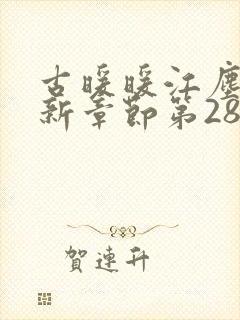 古暖暖江塵
新章節第28
賀連升